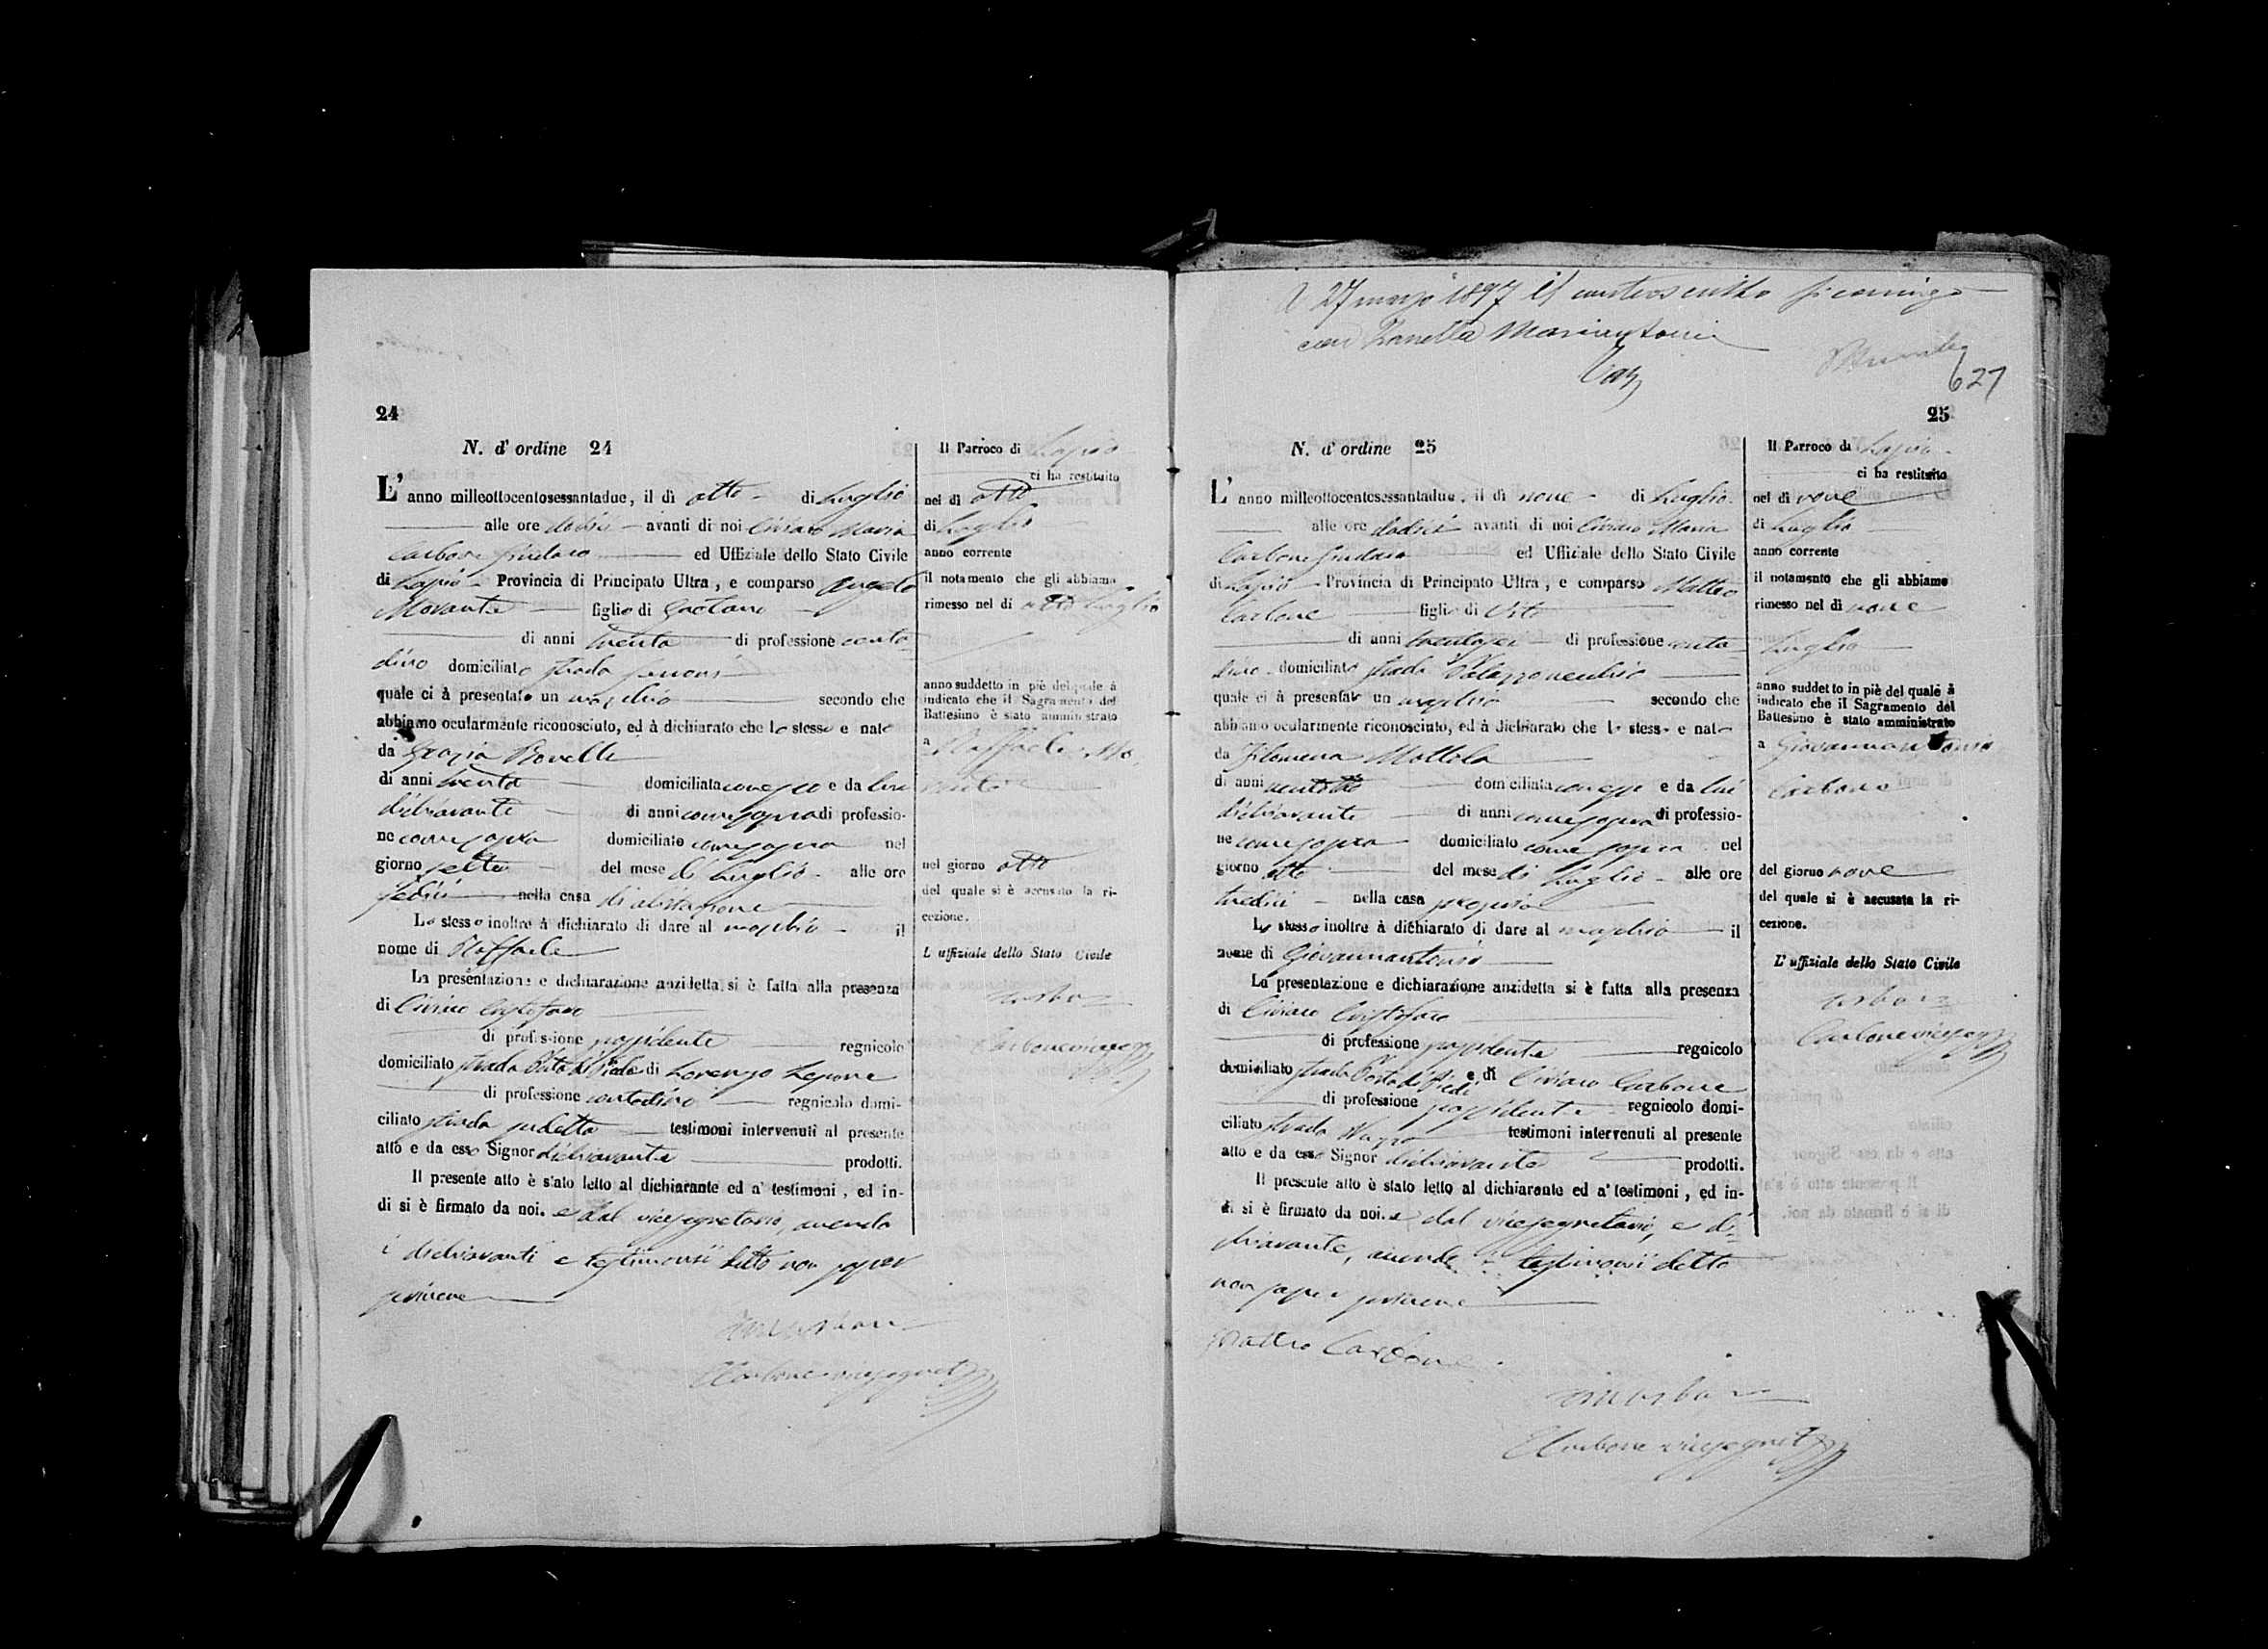 24
N. d' ordine 24
L' anno milleottocentosessantadue, il dì otto di Luglio
alle ore dodici avanti di noi Ciriaco Maria
Carbone Sindaco ed Uffiziale dello Stato Civile
di Lapio Provincia di Principato Ultra, e comparso Angelo
Morante figlio di Gaetano
di anni trenta di professione conta-
dino domiciliato strada
quale ci à presentato un maschio secondo che
abbiamo ocularmente riconosciuto, ed à dichiarato che lo stesso e nato
da Grazia
di anni trenta domiciliata come e da lui
dichiarante di anni come sopra di professio-
ne come sopra domiciliato come sopra nel
giorno sette del mese di Luglio alle ore
sedici nella casa di abitazione
Lo stesso inoltre à dichiarato di dare al maschio il
nome di Raffaele
La presentazione e dichiarazione anzidetta, si è fatta alla presenza
di Ciriaco Cristofaro
di professione possidente regnicolo
domiciliato strada di Lorenzo Lepore
di professione contadino regnicolo domi-
ciliato strada sudetta testimoni intervenuti al presente
atto e da esso Signor dichiarante prodotti.
Il presente atto è stato letto al dichiarante ed a' testimoni, ed in-
di si è firmato da noi. e dal vicesegretario, avendo
i dichiaranti e testimonii detto non saper
scrivere
Carbone vicesegret
Il Parroco di Lapio
ci ha restituito
nel dì otto
di Luglio
anno corrente
il notamento che gli abbiamo
rimesso nel dì otto Luglio
anno suddetto in piè del quale à
indicato che il Sagramento del
Battesimo è stato amministrato
a Raffaele Mo-
rante
nel giorno otto
del quale si è accusato la ri-
cezione.
L' uffiziale dello Stato Civile
Carbone
Carbone viceseg
Il 27 marzo 1897 il controscritto si coniugò
con Mariantonia
627
25
N. d' ordine 25
L' anno milleottocentosessantadue, il dì nove di Luglio
alle ore dodici avanti di noi Ciriaco Maria
Carbone Sindaco ed Uffiziale dello Stato Civile
di Lapio Provincia di Principato Ultra, e comparso Matteo
Carbone figlio di Vito
di anni trentasei di professione conta-
dino domiciliato strada Palazzo vecchio
quale ci à presentato un maschio secondo che
abbiamo ocularmente riconosciuto, ed à dichiarato che lo stesso e nato
da Filomena Mottola
di anni ventotto domiciliata come e da lui
dichiarante di anni come sopra di professio-
ne come sopra domiciliato come sopra nel
giorno otto del mese di Luglio alle ore
tredici nella casa propria
Lo stesso inoltre à dichiarato di dare al maschio il
nome di Giovannantonio
La presentazione e dichiarazione anzidetta si è fatta alla presenza
di Ciriaco Cristofaro
di professione possidente regnicolo
domiciliato strada Porta di Piedi e di Ciriaco Carbone
di professione possidente regnicolo domi-
ciliato strada testimoni intervenuti al presente
atto e da esso Signor dichiarante prodotti.
Il presente atto è stato letto al dichiarante ed a' testimoni, ed in-
di si è firmato da noi. e dal vicesegretario, e di-
chiarante, avendo i testimonii detto
non saper scrivere
Matteo Carbone
Carbone vicesegret
Il Parroco di Lapio
ci ha restituito
nel dì nove
di Luglio
anno corrente
il notamento che gli abbiamo
rimesso nel dì nove
Luglio
anno suddetto in piè del quale à
indicato che il Sagramento del
Battesimo è stato amministrato
a Giovannantonio
Carbone
del giorno nove
del quale si è accusata la ri-
cezione.
L' uffiziale dello Stato Civile
Carbone
Carbone viceseg